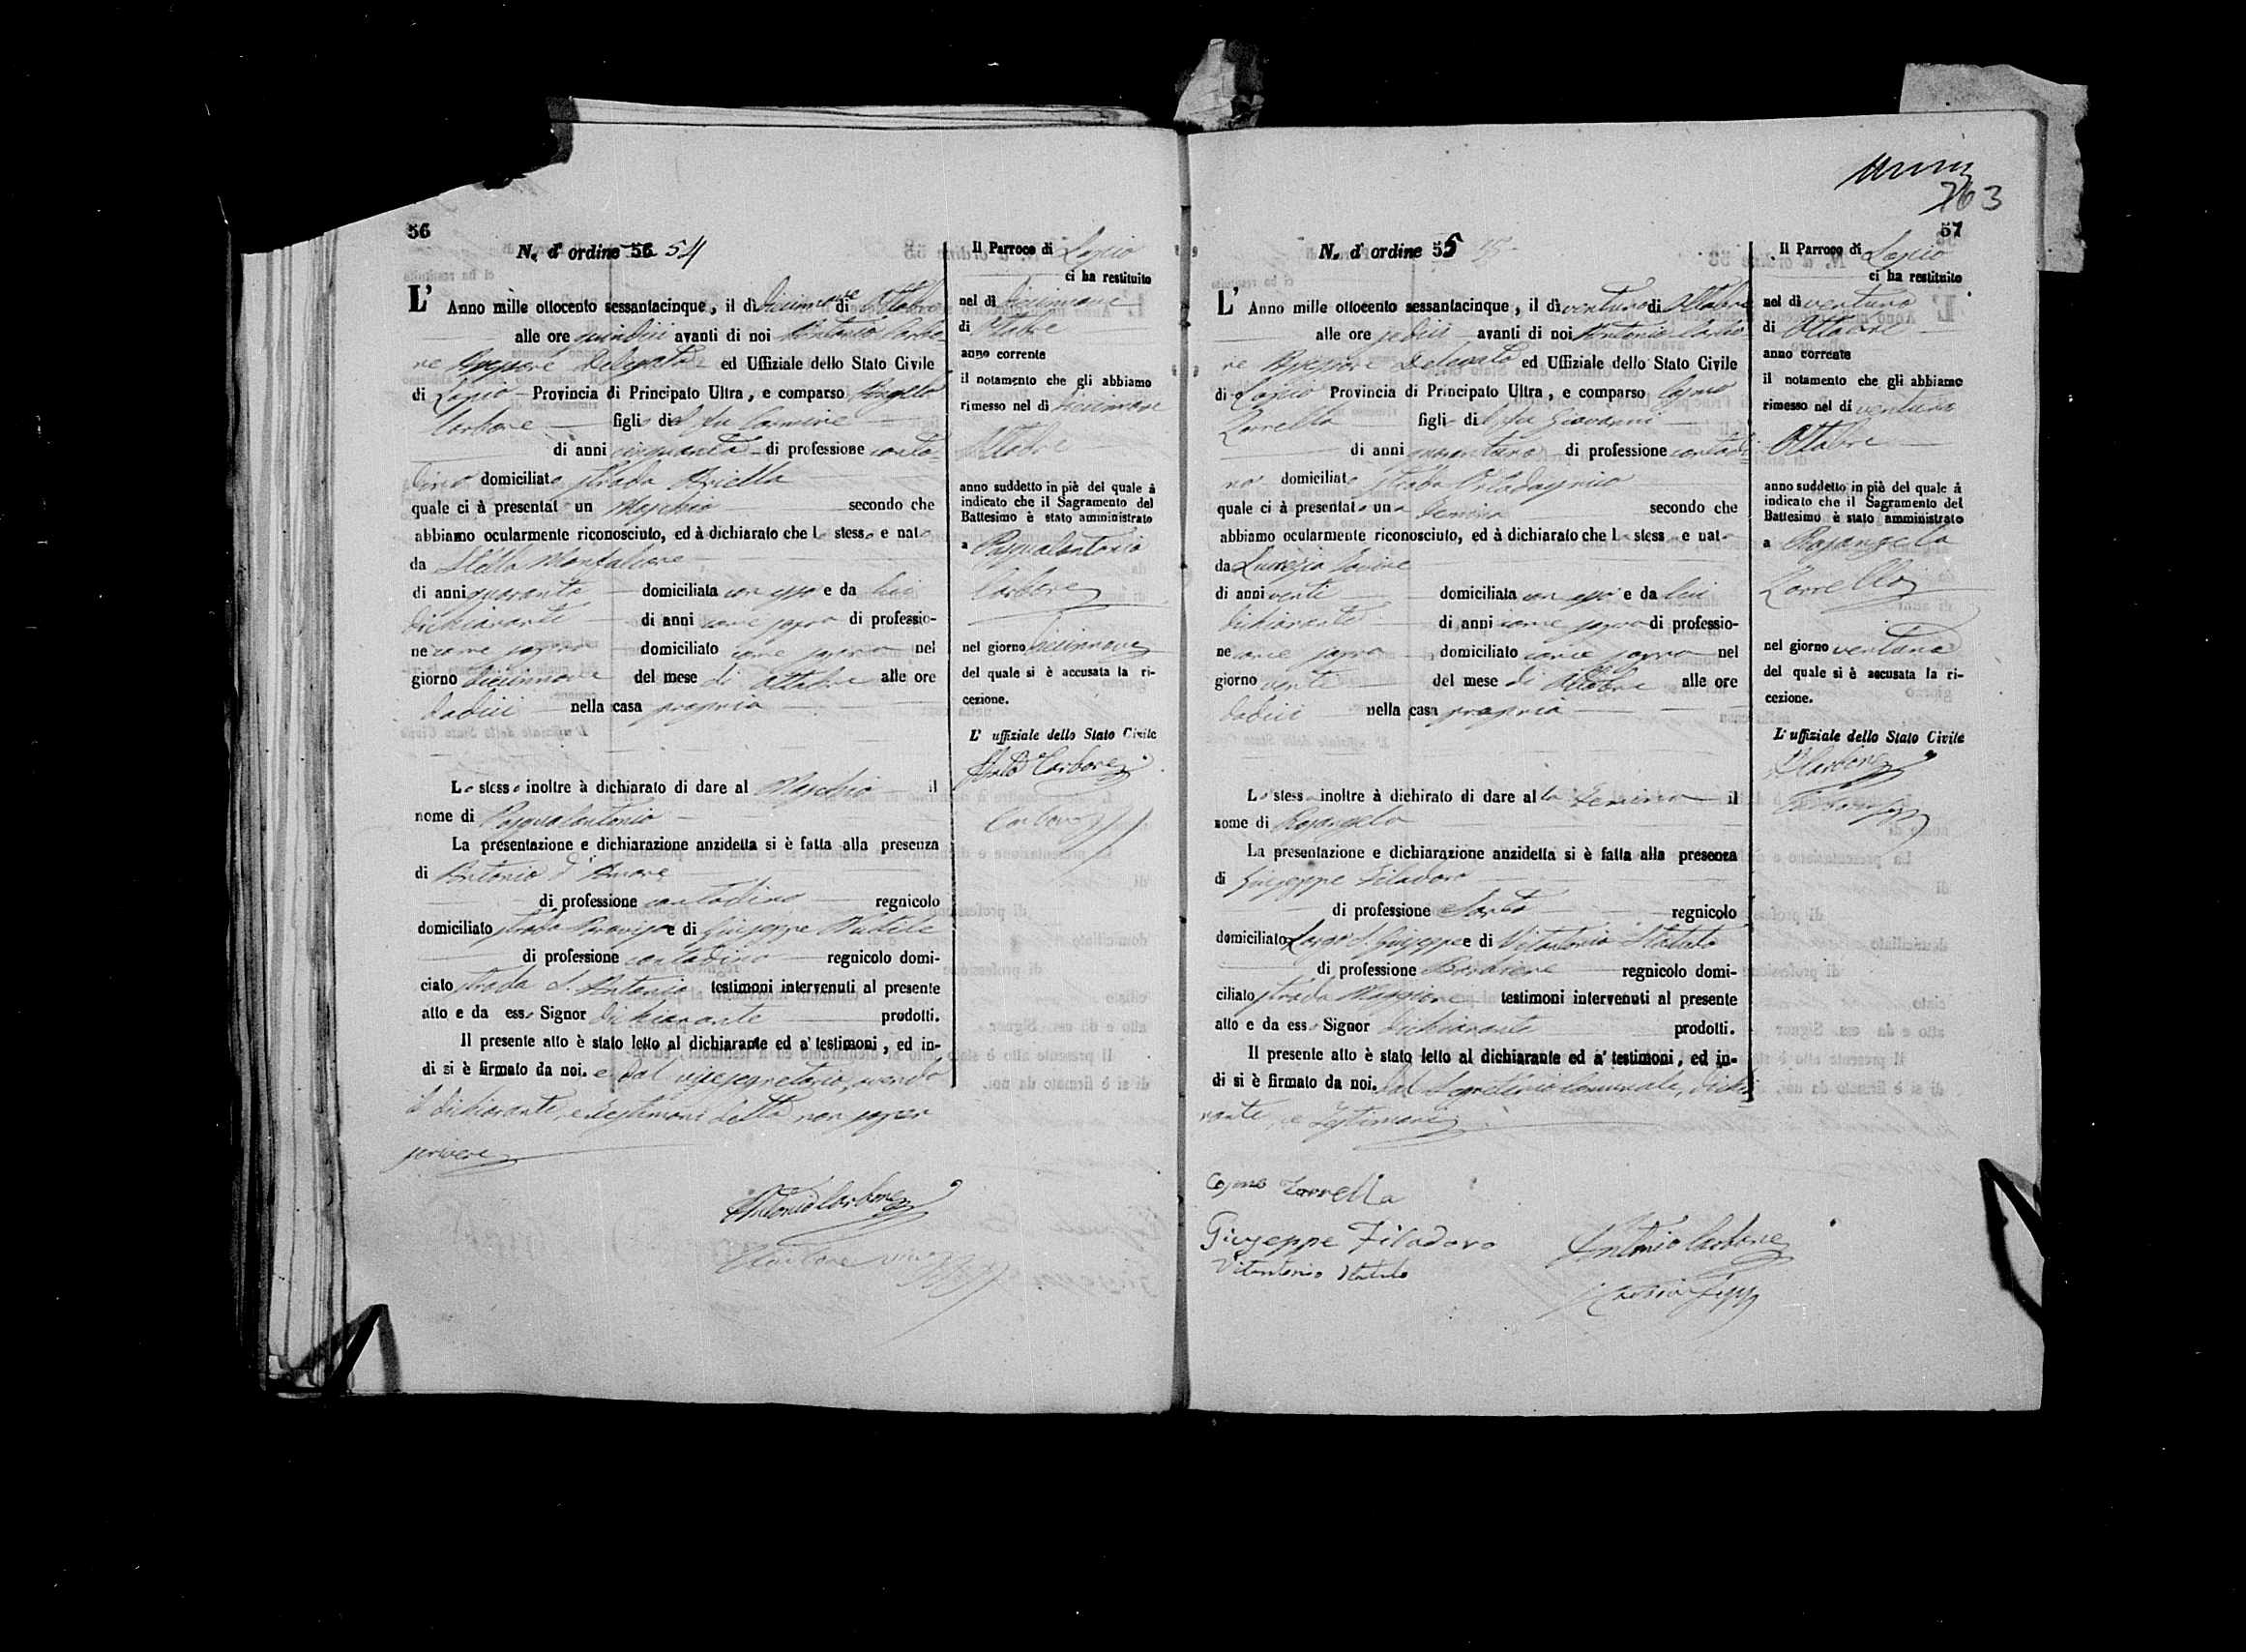 56
N. d' ordine 56 54
L' Anno mille ottocento sessantacinque, il dì diecinnove di Ottobre
alle ore quindici avanti di noi Antonio Carbo-
ne Assessore Delegato ed Uffiziale dello Stato Civile
di Lapio Provincia di Principato Ultra, e comparso Angelo
Carbone figlio del fu Carmine
di anni cinquanta di professione conta-
dino domiciliato strada Ariella
quale ci à presentat un Maschio secondo che
abbiamo ocularmente riconosciuto, ed à dichiarato che lo stesso e nato
da Stella
di anni quaranta domiciliata con esso e da lui
dichiarante di anni come sopra di professio-
ne come sopra domiciliato come sopra nel
giorno diecinnove del mese di Ottobre alle ore
dodici nella casa propria
Lo stesso inoltre à dichiarato di dare al Maschio il
nome di Pasqualantonio
La presentazione e dichiarazione anzidetta si è fatta alla presenza
di Antonio d'Amore
di professione contadino regnicolo
domiciliato strada e di Giuseppe
di professione contadino regnicolo domi-
ciato strada S. Antonio testimoni intervenuti al presente
atto e da esso Signor dichiarante prodotti.
Il presente atto è stato letto al dichiarante ed a' testimoni, ed in-
di si è firmato da noi. e dal vicesegretario, avendo
il dichiarante, e testimoni detto non saper
scrivere
Antonio Carbone
Il Parroco di Lapio
ci ha restituito
nel dì diecinnove
di Ottobre
anno corrente
il notamento che gli abbiamo
rimesso nel dì diecinnove
Ottobre
anno suddetto in piè del quale à
indicato che il Sagramento del
Battesimo è stato amministrato
a Pasqualantonio
Carbone
nel giorno diecinnove
del quale si è accusata la ri-
cezione.
L' uffiziale dello Stato Civile
Anto Carbone
763
57
N. d' ordine 55
L' Anno mille ottocento sessantacinque, il dì ventuno di Ottobre
alle ore sedici avanti di noi Antonio Carbo-
ne Assessore Delegato ed Uffiziale dello Stato Civile
di Lapio Provincia di Principato Ultra, e comparso Cosmo
Zarrella figlio del fu Giovanni
di anni quarantuno di professione contadi-
no domiciliato strada
quale ci à presentato una Femina secondo che
abbiamo ocularmente riconosciuto, ed à dichiarato che la stessa e nata
da Lucrezia
di anni venti domiciliata con esso e da lui
dichiarante di anni come sopra di professio-
ne come sopra domiciliato come sopra nel
giorno venti del mese di Ottobre alle ore
dodici nella casa propria
Lo stesso inoltre à dichirato di dare alla Femina il
nome di Rosangela
La presentazione e dichiarazione anzidetta si è fatta alla presenza
di Giuseppe Filadoro
di professione Sarto regnicolo
domiciliato Largo S. Giuseppe e di Vitantonio Statuto
di professione regnicolo domi-
ciliato strada Maggiore testimoni intervenuti al presente
atto e da esso Signor dichiarante prodotti.
Il presente atto è stato letto al dichiarante ed a' testimoni, ed in-
di si è firmato da noi. dal Segretario Comunale, dichia-
rante, e Testimoni
Cosmo Zarrella
Giuseppe Filadoro
Vitantonio Statuto
Antonio Carbone
Il Parroco di Lapio
ci ha restituito
nel dì ventuno
di Ottobre
anno corrente
il notamento che gli abbiamo
rimesso nel dì ventuno
Ottobre
anno suddetto in piè del quale à
indicato che il Sagramento del
Battesimo è stato amministrato
a Rosangela
Zarrella
nel giorno ventuno
del quale si è accusata la ri-
cezione.
L' uffiziale dello Stato Civile
A Carbone